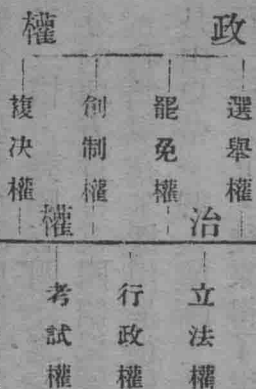 政權
選舉權
罷免權
創制權
複决權
治權
立法權
行政權
考試權